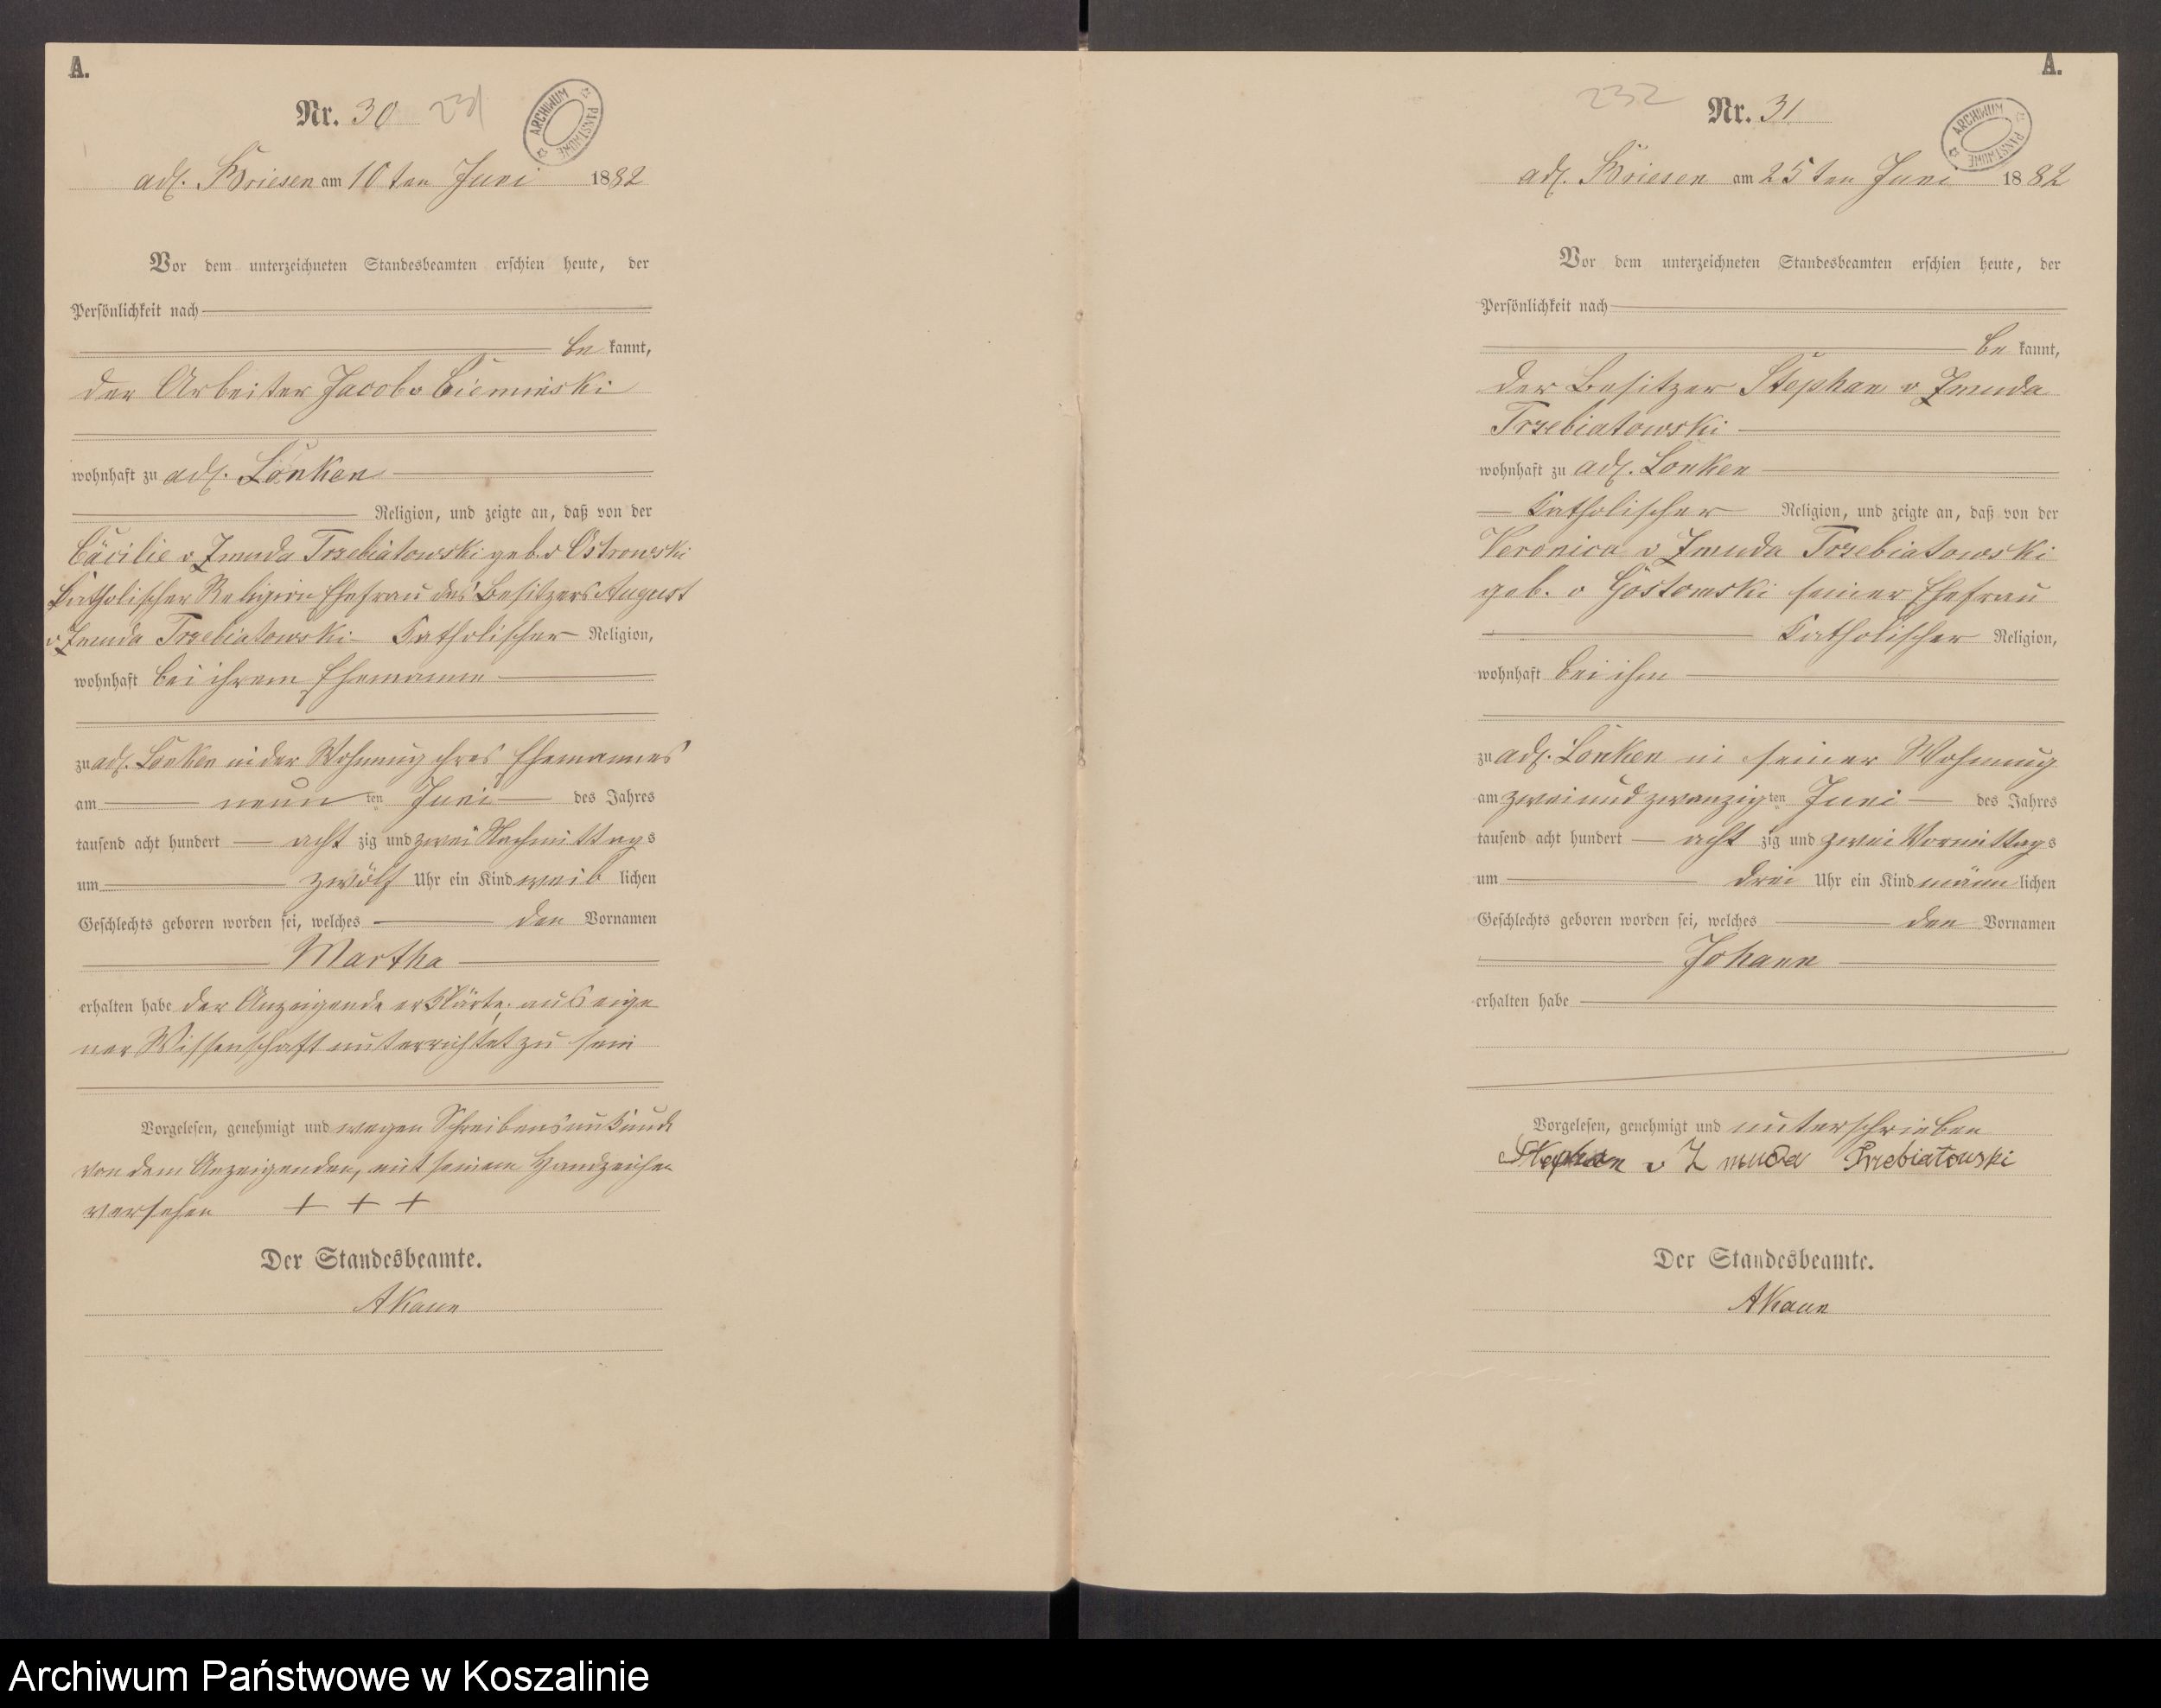 A.
Nr. 30 231
ARCHIWUM PAŃSTWOWE
adl. Briesen am 10ten Juni 1882
Vor dem unterzeichneten Standesbeamten erschien heute, der
Persönlichkeit nach
be kannt,
der Arbeiter Jacob v Cieminski
wohnhaft zu adl. Lonken
Religion, und zeigte an, daß von der
Cäcilie v Zmuda Trzebiatowski geb. v Ostrowski
katholischer Religion Ehefrau des Besitzers August
v Zmuda Trzebiatowski katholischer Religion,
wohnhaft bei ihrem Ehemanne
zu adl. Lonken in der Wohnung ihres Ehemannes
am neun ten Juni des Jahres
tausend acht hundert acht zig und zwei Nachmittags
um zwölf Uhr ein Kind weib lichen
Geschlechts geboren worden sei, welches den Vornamen
Martha
erhalten habe der Anzeigende erklärte, aus eige
ner Wissenschaft unterrichtet zu sein
Vorgelesen, genehmigt und wegen Schreibensunkunde
von dem Anzeigenden, mit seinem Handzeichen
versehen + + +
Der Standesbeamte.
AKaun
A.
232 Nr. 31
ARCHIWUM PAŃSTWOWE
adl. Briesen am 25ten Juni 1882
Vor dem unterzeichneten Standesbeamten erschien heute, der
Persönlichkeit nach
be kannt,
der Besitzer Stephan v Zmuda
Trzebiatowski
wohnhaft zu adl. Lonken
katholischer Religion, und zeigte an, daß von der
Veronica v Zmuda Trzebiatowski
geb. v Gostomski seiner Ehefrau
katholischer Religion,
wohnhaft bei ihm
zu adl. Lonken in seiner Wohnung
am zweiundzwanzig ten Juni des Jahres
tausend acht hundert acht zig und zwei Vormittags
um drei Uhr ein Kind männ lichen
Geschlechts geboren worden sei, welches den Vornamen
Johann
erhalten habe
Vorgelesen, genehmigt und unterschrieben
Stephan v Zmuda Trzebiatowski
Der Standesbeamte.
AKaun
Archiwum Państwowe w Koszalinie